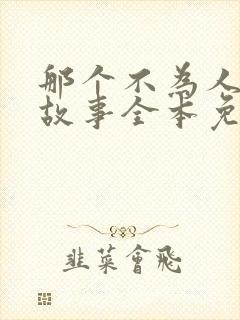 那个不为人
故事全本免
韭菜會飛